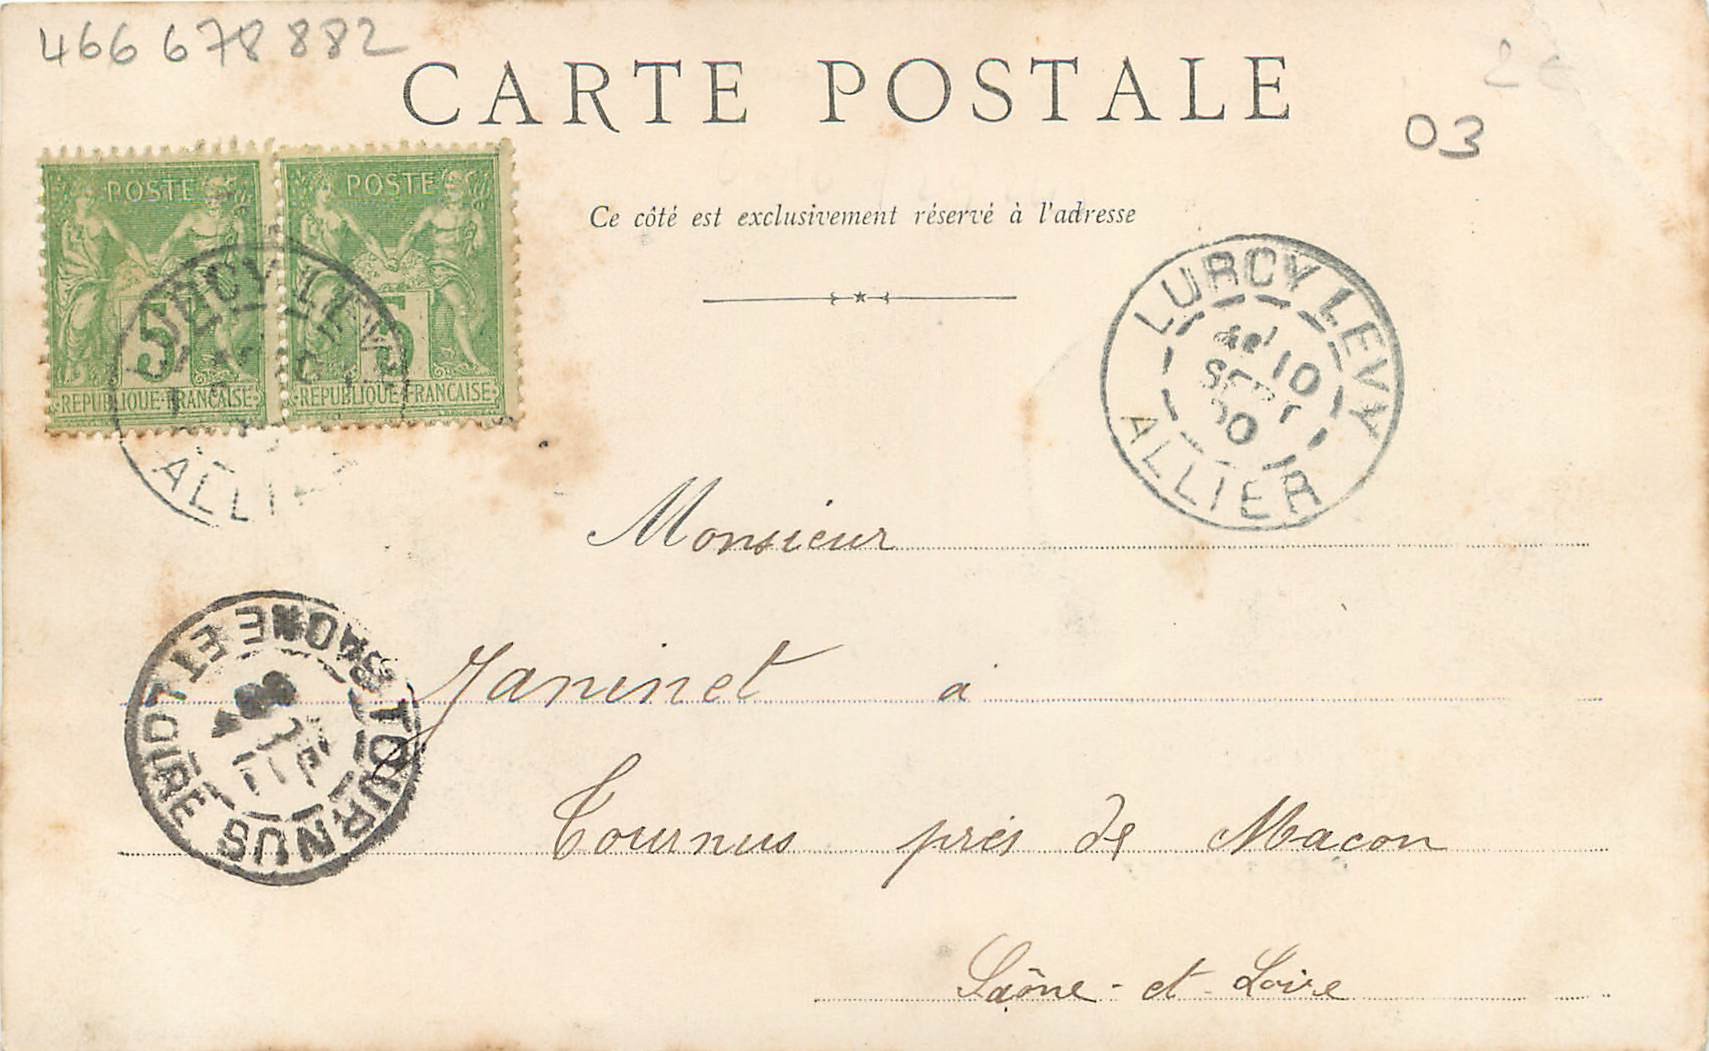 466 678 882
CARTE POSTALE
2€
03
POSTE POSTE
5 5
REPUBLIQUE FRANCAISE REPUBLIQUE FRANCAISE
LURCY LEVY
ALLIER
Ce côté est exclusivement réservé à l'adresse
LURCY LEVY
10
SEPT
00
ALLIER
Monsieur
Janinet à
Tournus près de Macon
Saône-et-Loire
TOURNUS
SAONE ET LOIRE